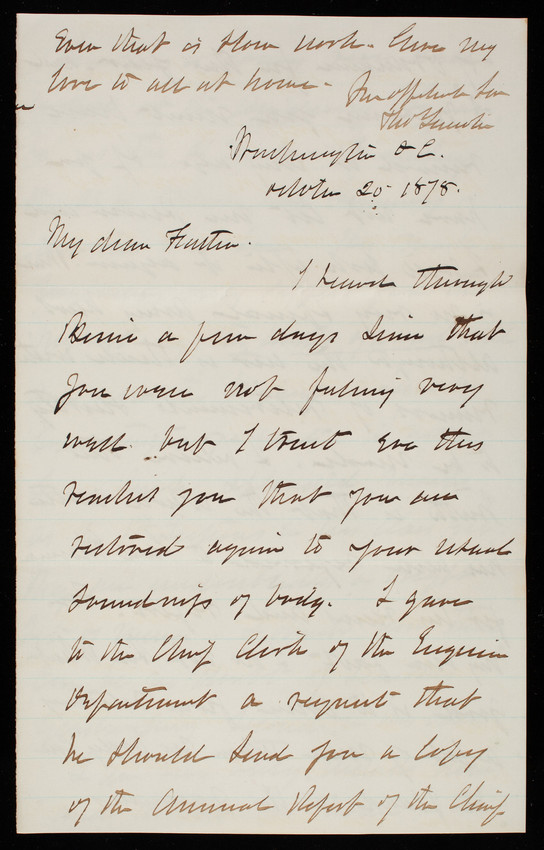 Even that is slow work. Give my
love to all at home.
Your affectionate Son
Thos
Washington D.C.
October 20 1878.
My dear Father.
I heard through
Bernie a few days since that
you were not feeling very
well but I trust ere this
reaches you that you are
restored again to your usual
soundness of body. I gave
to the Chief Clerk of the Engineer
Department a request that
he should send you a copy
of the Annual Report of the Chief